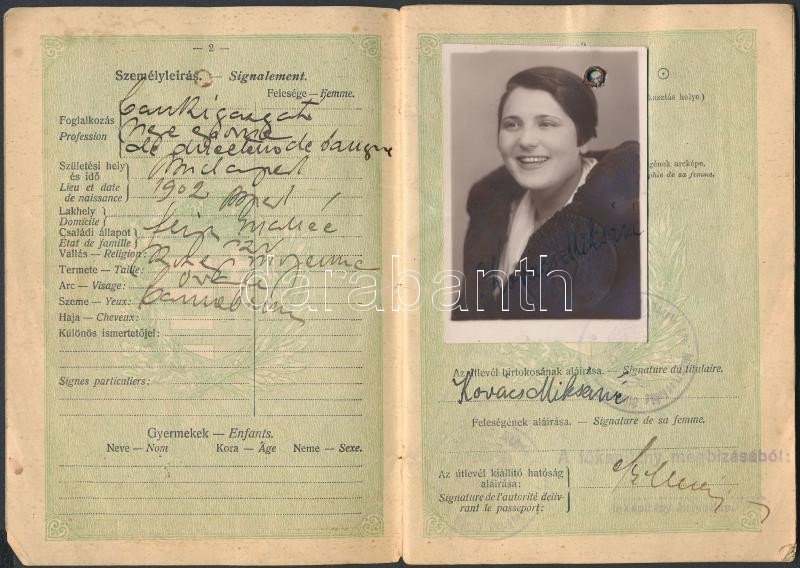 — 2 —
Személyleirás. — Signalement.
Felesége — Femme.
Foglalkozás
Profession
bankigazgató
neje épouse
de directeur de banque
Születési hely
és idő
Lieu et date
de naissance
Budapest
1902
Lakhely
Domicile
Bpest
Családi állapot
État de famille
férj. mariée
Vallás — Religion:
izr
Termete — Taille:
közép moyenne
Arc — Visage:
ovál
Szeme — Yeux:
barna brun
Haja — Cheveux:
Különös ismertetőjel:
Signes particuliers:
Gyermekek — Enfants.
Neve — Nom Kora — Âge Neme — Sexe.
kasztás helye.)
gének arcképe.
phie de sa femme.
Kovács Miksáné
Az útlevél birtokosának aláírása. — Signature du titulaire.
Kovács Miksáné
Feleségének aláírása. — Signature de sa femme.
A főkapitány megbizásából:
Az útlevél kiállító hatóság
aláírása:
Signature de l'autorité déliv-
rant le passeport:
darabanth